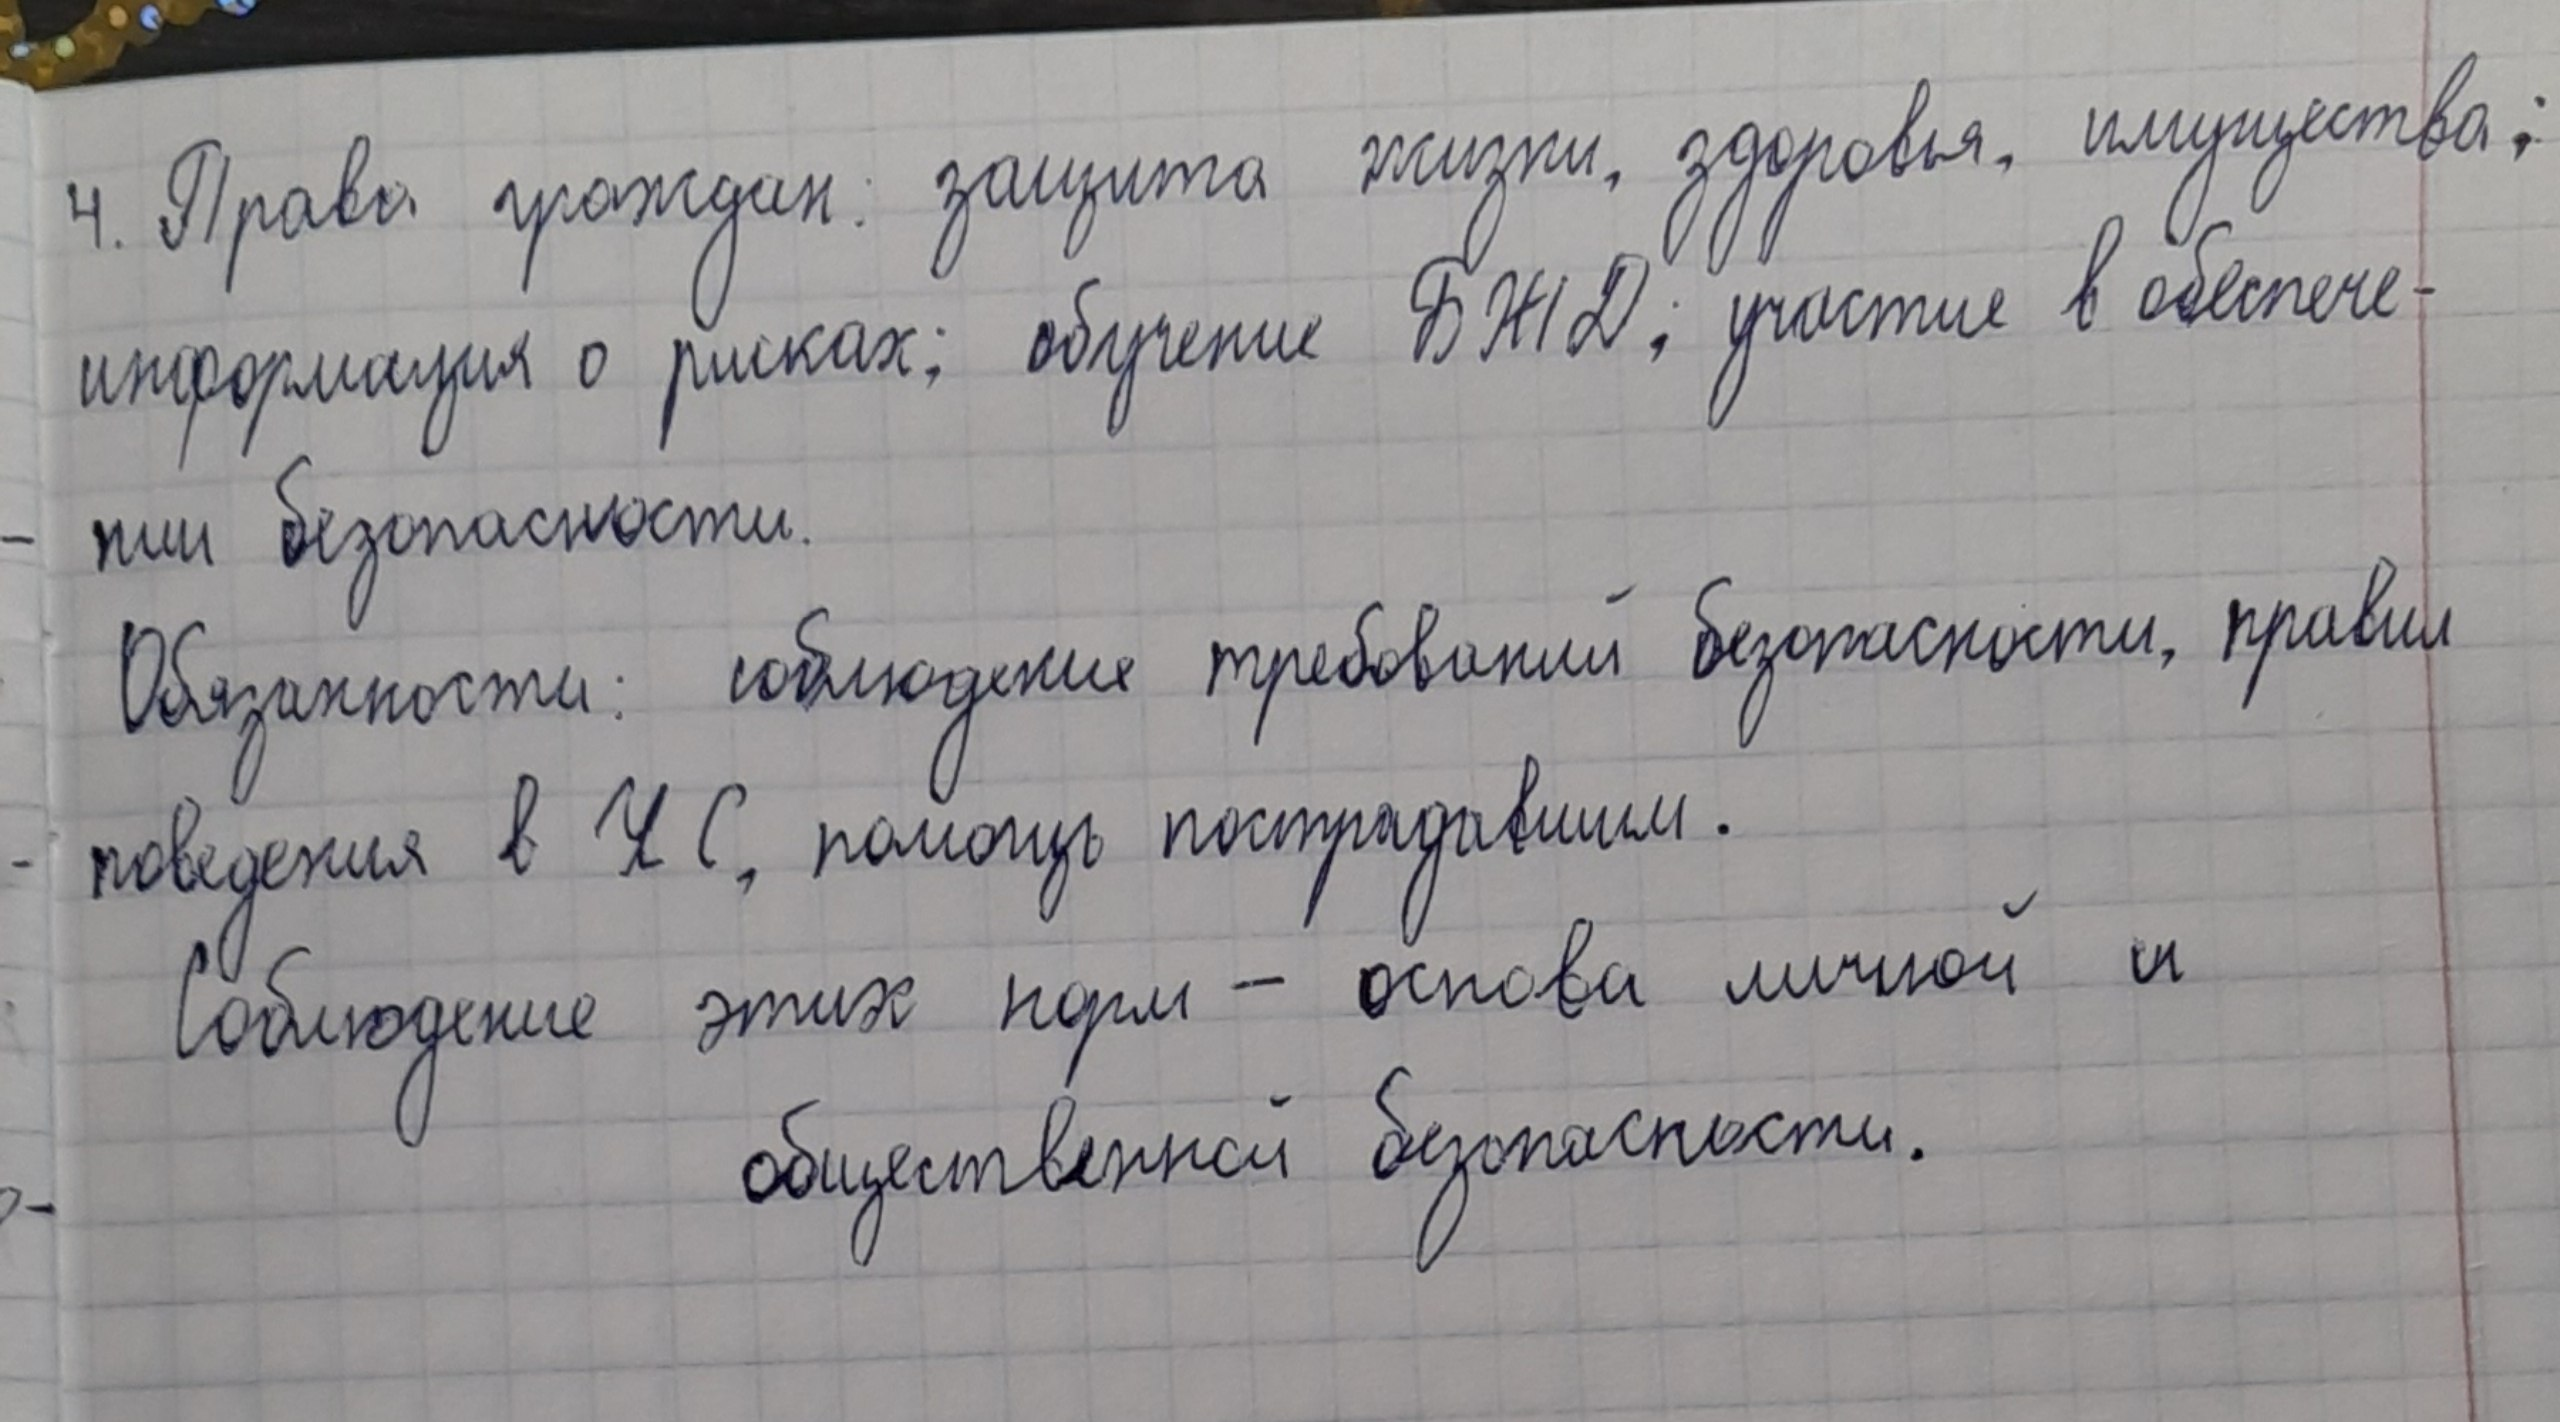 4. Права граждан: защита жизни, здоровья, имущества;
информация о рисках; обучение БЖД; участие в обеспече-
нии безопасности.
Обязанности: соблюдение требований безопасности, правил
поведения в ЧС, помощь пострадавшим.
Соблюдение этих норм – основа личной и
общественной безопасности.